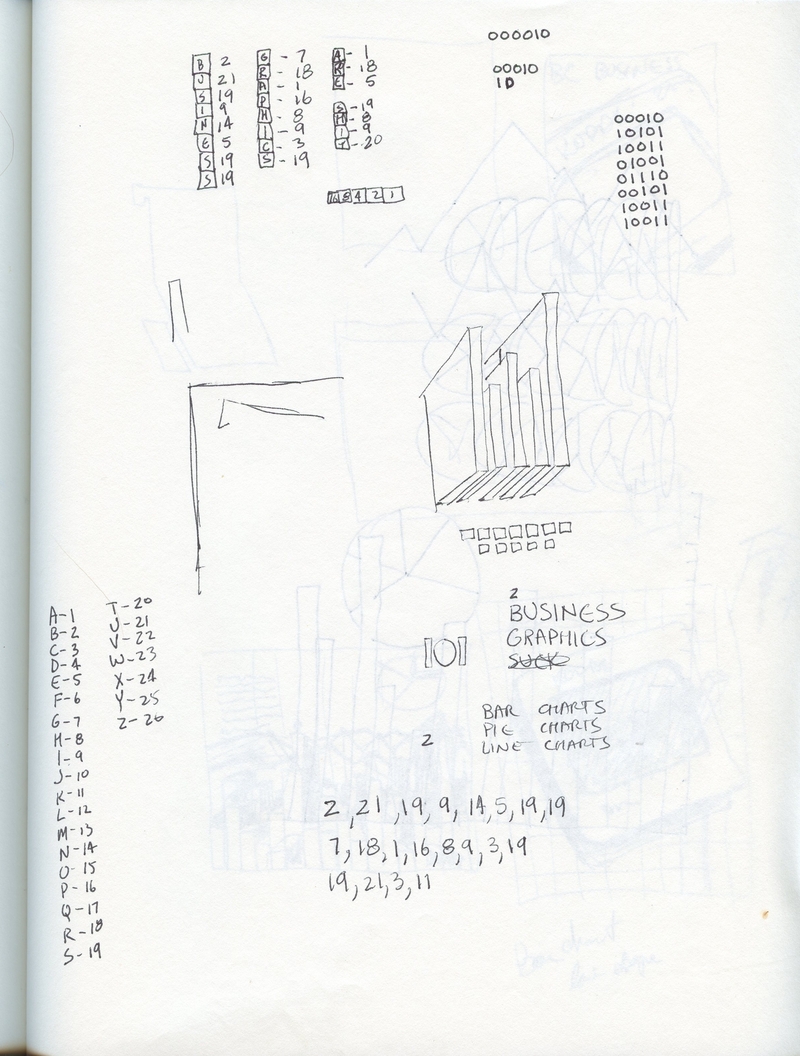 000010
00010
10
B 2
U 21
S 19
I 9
N 14
E 5
S 19
S 19
G - 7
R - 18
A - 1
P - 16
H - 8
I - 9
C - 3
S - 19
A - 1
R - 18
E - 5
S - 19
H - 8
I - 9
T - 20
16 8 4 2 1
00010
10101
10011
01001
01110
00101
10011
10011
A-1
B-2
C-3
D-4
E-5
F-6
G-7
H-8
I-9
J-10
K-11
L-12
M-13
N-14
O-15
P-16
Q-17
R-18
S-19
T-20
U-21
V-22
W-23
X-24
Y-25
Z-26
2
BUSINESS
GRAPHICS
SUCK
101
BAR CHARTS
PIE CHARTS
LINE CHARTS
2
2, 21, 19, 9, 14, 5, 19, 19
7, 18, 1, 16, 8, 9, 3, 19
19, 21, 3, 11
BC BUSINESS